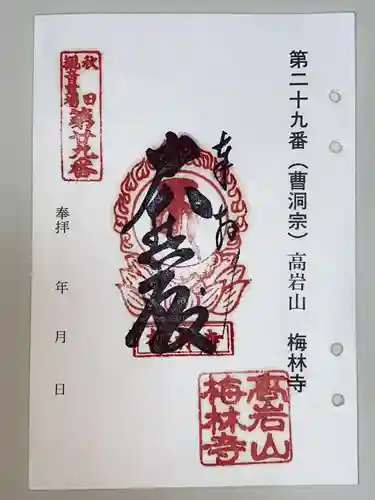 第二十九番（曹洞宗）高岩山　梅林寺
奉拝
大悲殿
秋田
観音霊場
第廿九番
高岩山
梅林寺
奉拝　年　月　日